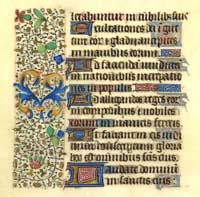 letabuntur in cubilibus suis
Exultationes dei i gut
ture eor et gladii ancipites
in manibus eorum
Ad faciendā vindictā
in nationibus increpatio
nes in populis
Ad alligandos reges eor
in compedibus et nobiles
eorum in manicis ferreis
Ut faciant in eis iudi
cium conscriptum gloria
hec est omnibus scis eius
Laudate dominum
in sanctis eius